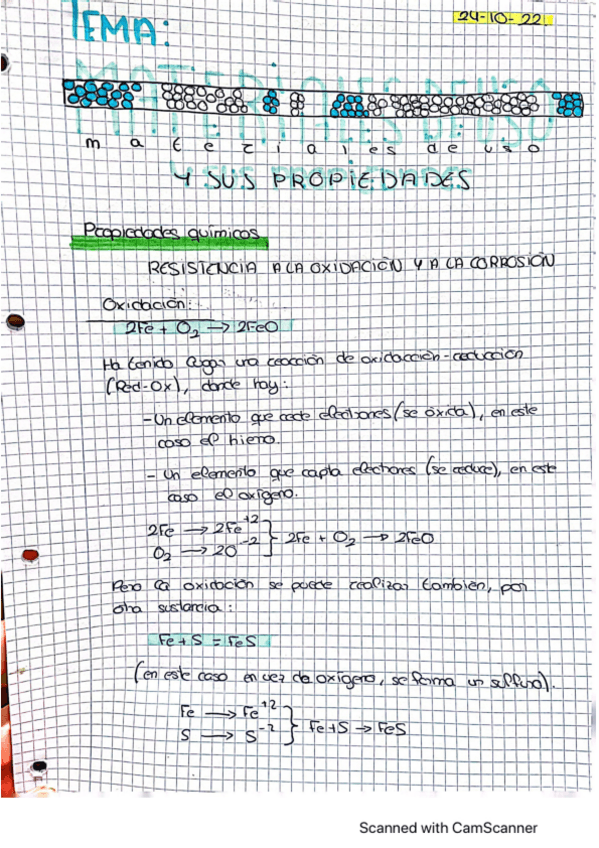 TEMA:
24-10-22
MATERIALES DE USO
materiales de uso
Y SUS PROPIEDADES
Propiedades químicos
RESISTENCIA A LA OXIDACIÓN Y A LA CORROSIÓN
Oxidación:
2Fe + O2 → 2FeO
Ha tenido lugar una reacción de oxidacción-reducción
(Red-Ox), donde hay:
- Un elemento que cede electrones (se óxida), en este
caso el hierro.
- Un elemento que capta electrones (se reduce), en este
caso el oxígeno.
2Fe → 2Fe+2 } 2Fe + O2 → 2FeO
O2 → 2O-2
Pero la oxidación se puede realizar también, por
otra sustancia:
Fe + S = FeS
(en este caso en vez de oxígeno, se forma un sulfuro).
Fe → Fe+2 } Fe+S → FeS
S → S-2
Scanned with CamScanner